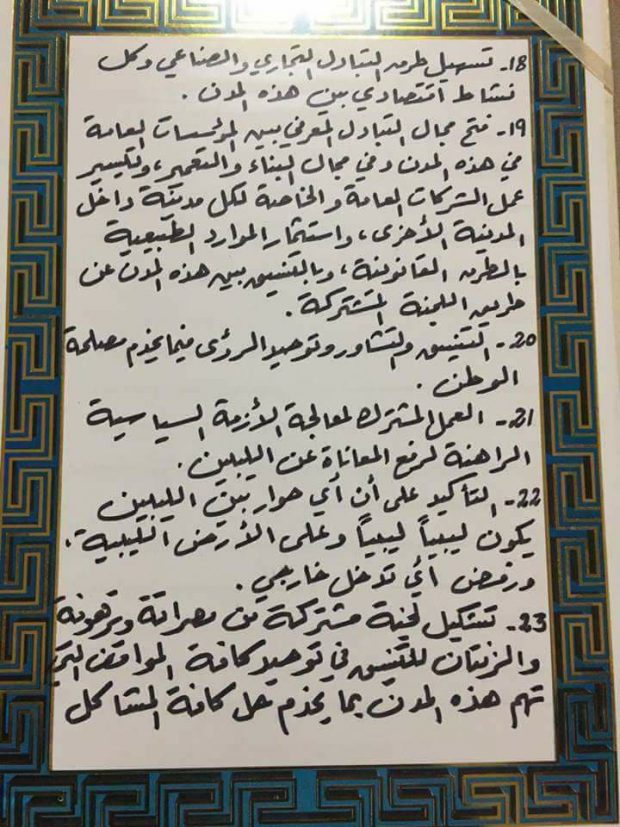 18- تسهيل طرق التبادل التجاري والصناعي وكل
نشاط اقتصادي بين هذه المدن .
19- فتح مجال التبادل المعرفي بين المؤسسات العامة
في هذه المدن وفي مجال البناء والتعمير ، وتيسير
عمل الشركات العامة والخاصة لكل مدينة داخل
المدينة الأخرى ، واستثمار الموارد الطبيعية
بالطرق القانونية ، وبالتنسيق بين هذه المدن عن
طريق اللجنة المشتركة .
20- التنسيق والتشاور وتوحيد الرؤى فيما يخدم مصلحة
الوطن .
21- العمل المشترك لمعالجة الأزمة السياسية
الراهنة لرفع المعاناة عن الليبين .
22- التأكيد على أن أي حوار بين الليبين
يكون ليبياً ليبياً وعلى الأرض الليبية .
ورفض أي تدخل خارجي .
23- تشكيل لجنة مشتركة من مصراتة وترهونة
والزنتان للتنسيق في توحيد كافة المواقف التي
تهم هذه المدن بما يخدم حل كافة المشاكل